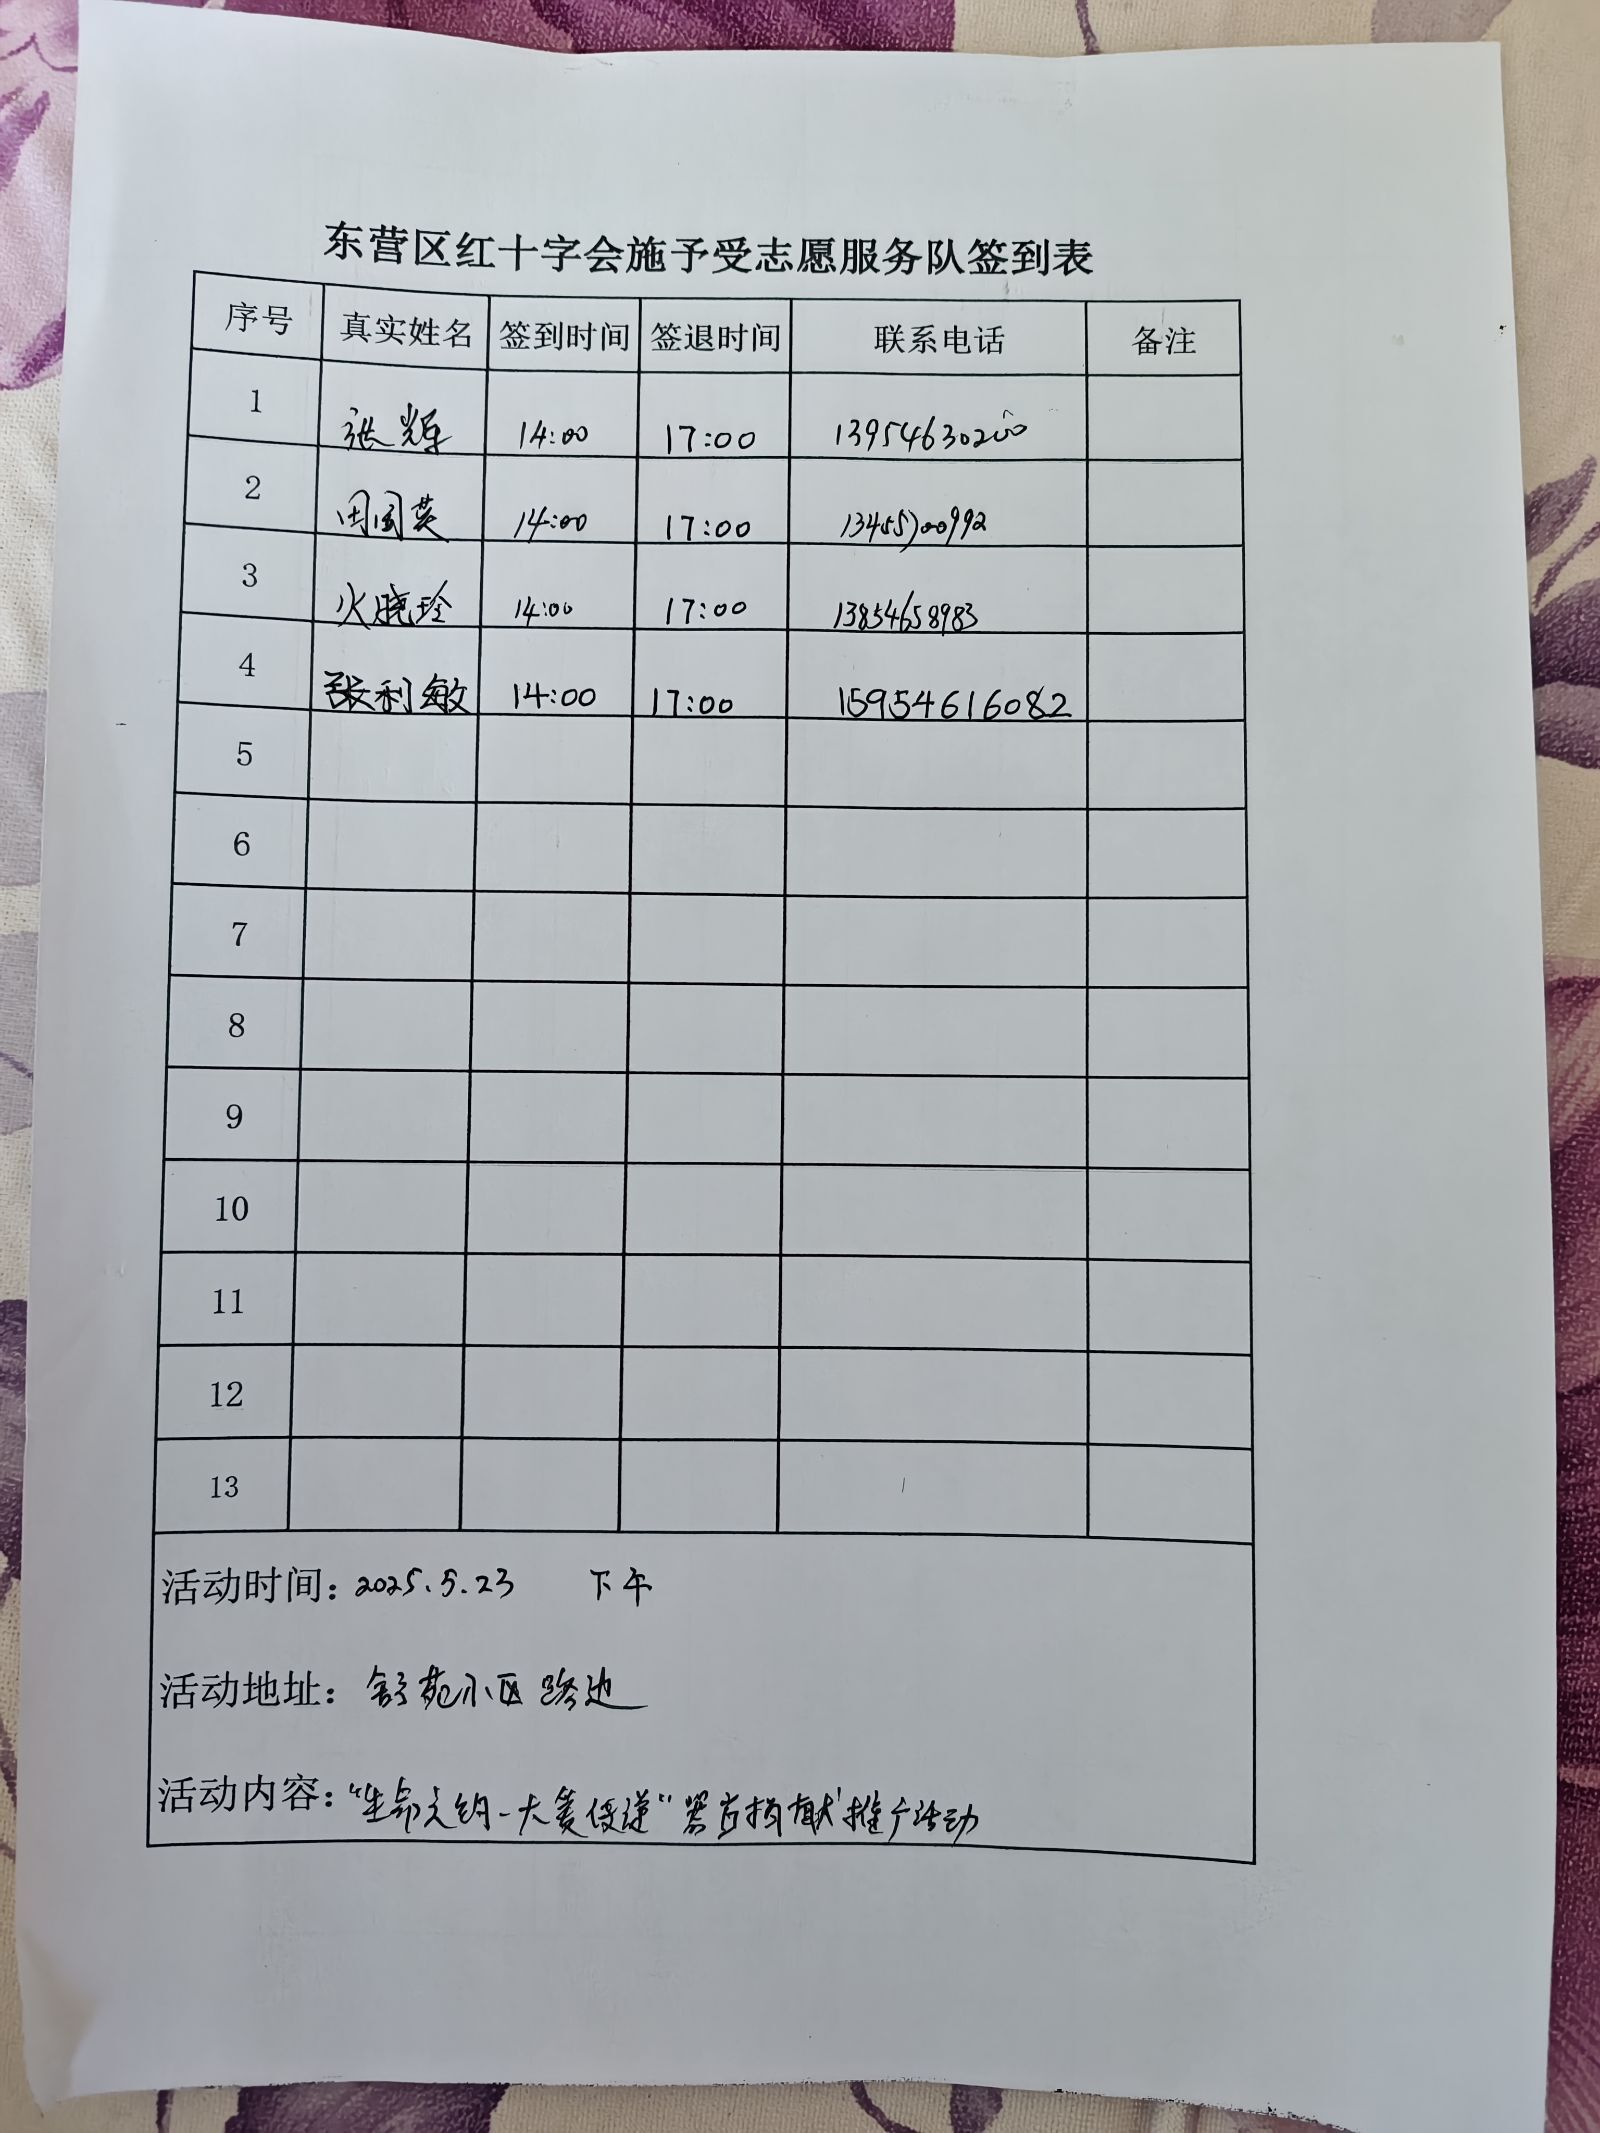 东营区红十字会施予受志愿服务队签到表
序号 真实姓名 签到时间 签退时间 联系电话 备注
1 张辉 14:00 17:00 13954630200
2 田国英 14:00 17:00 13455700992
3 火晓玲 14:00 17:00 13854658983
4 张利敏 14:00 17:00 15954616082
5
6
7
8
9
10
11
12
13
活动时间：2025.5.23 下午
活动地址：舒苑小区路边
活动内容：“生命之钥-大爱传递”器官捐献推广活动